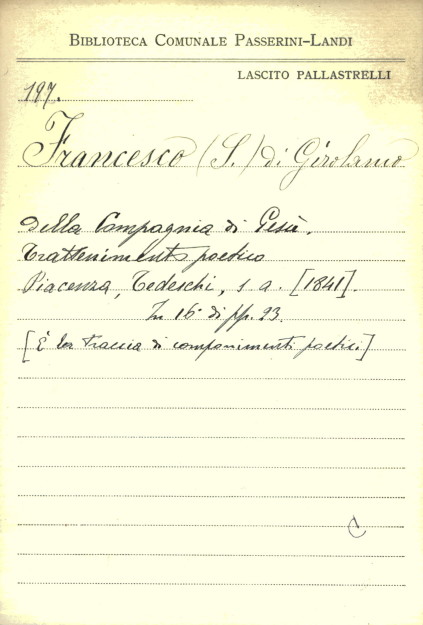 BIBLIOTECA COMUNALE PASSERINI-LANDI
LASCITO PALLASTRELLI
197.
Francesco (S.) di Girolamo
della Compagnia di Gesù.
Trattenimento poetico
Piacenza, Tedeschi, s a. [1841].
In 16° di pp. 23.
[È la traccia di componimenti poetici]
C